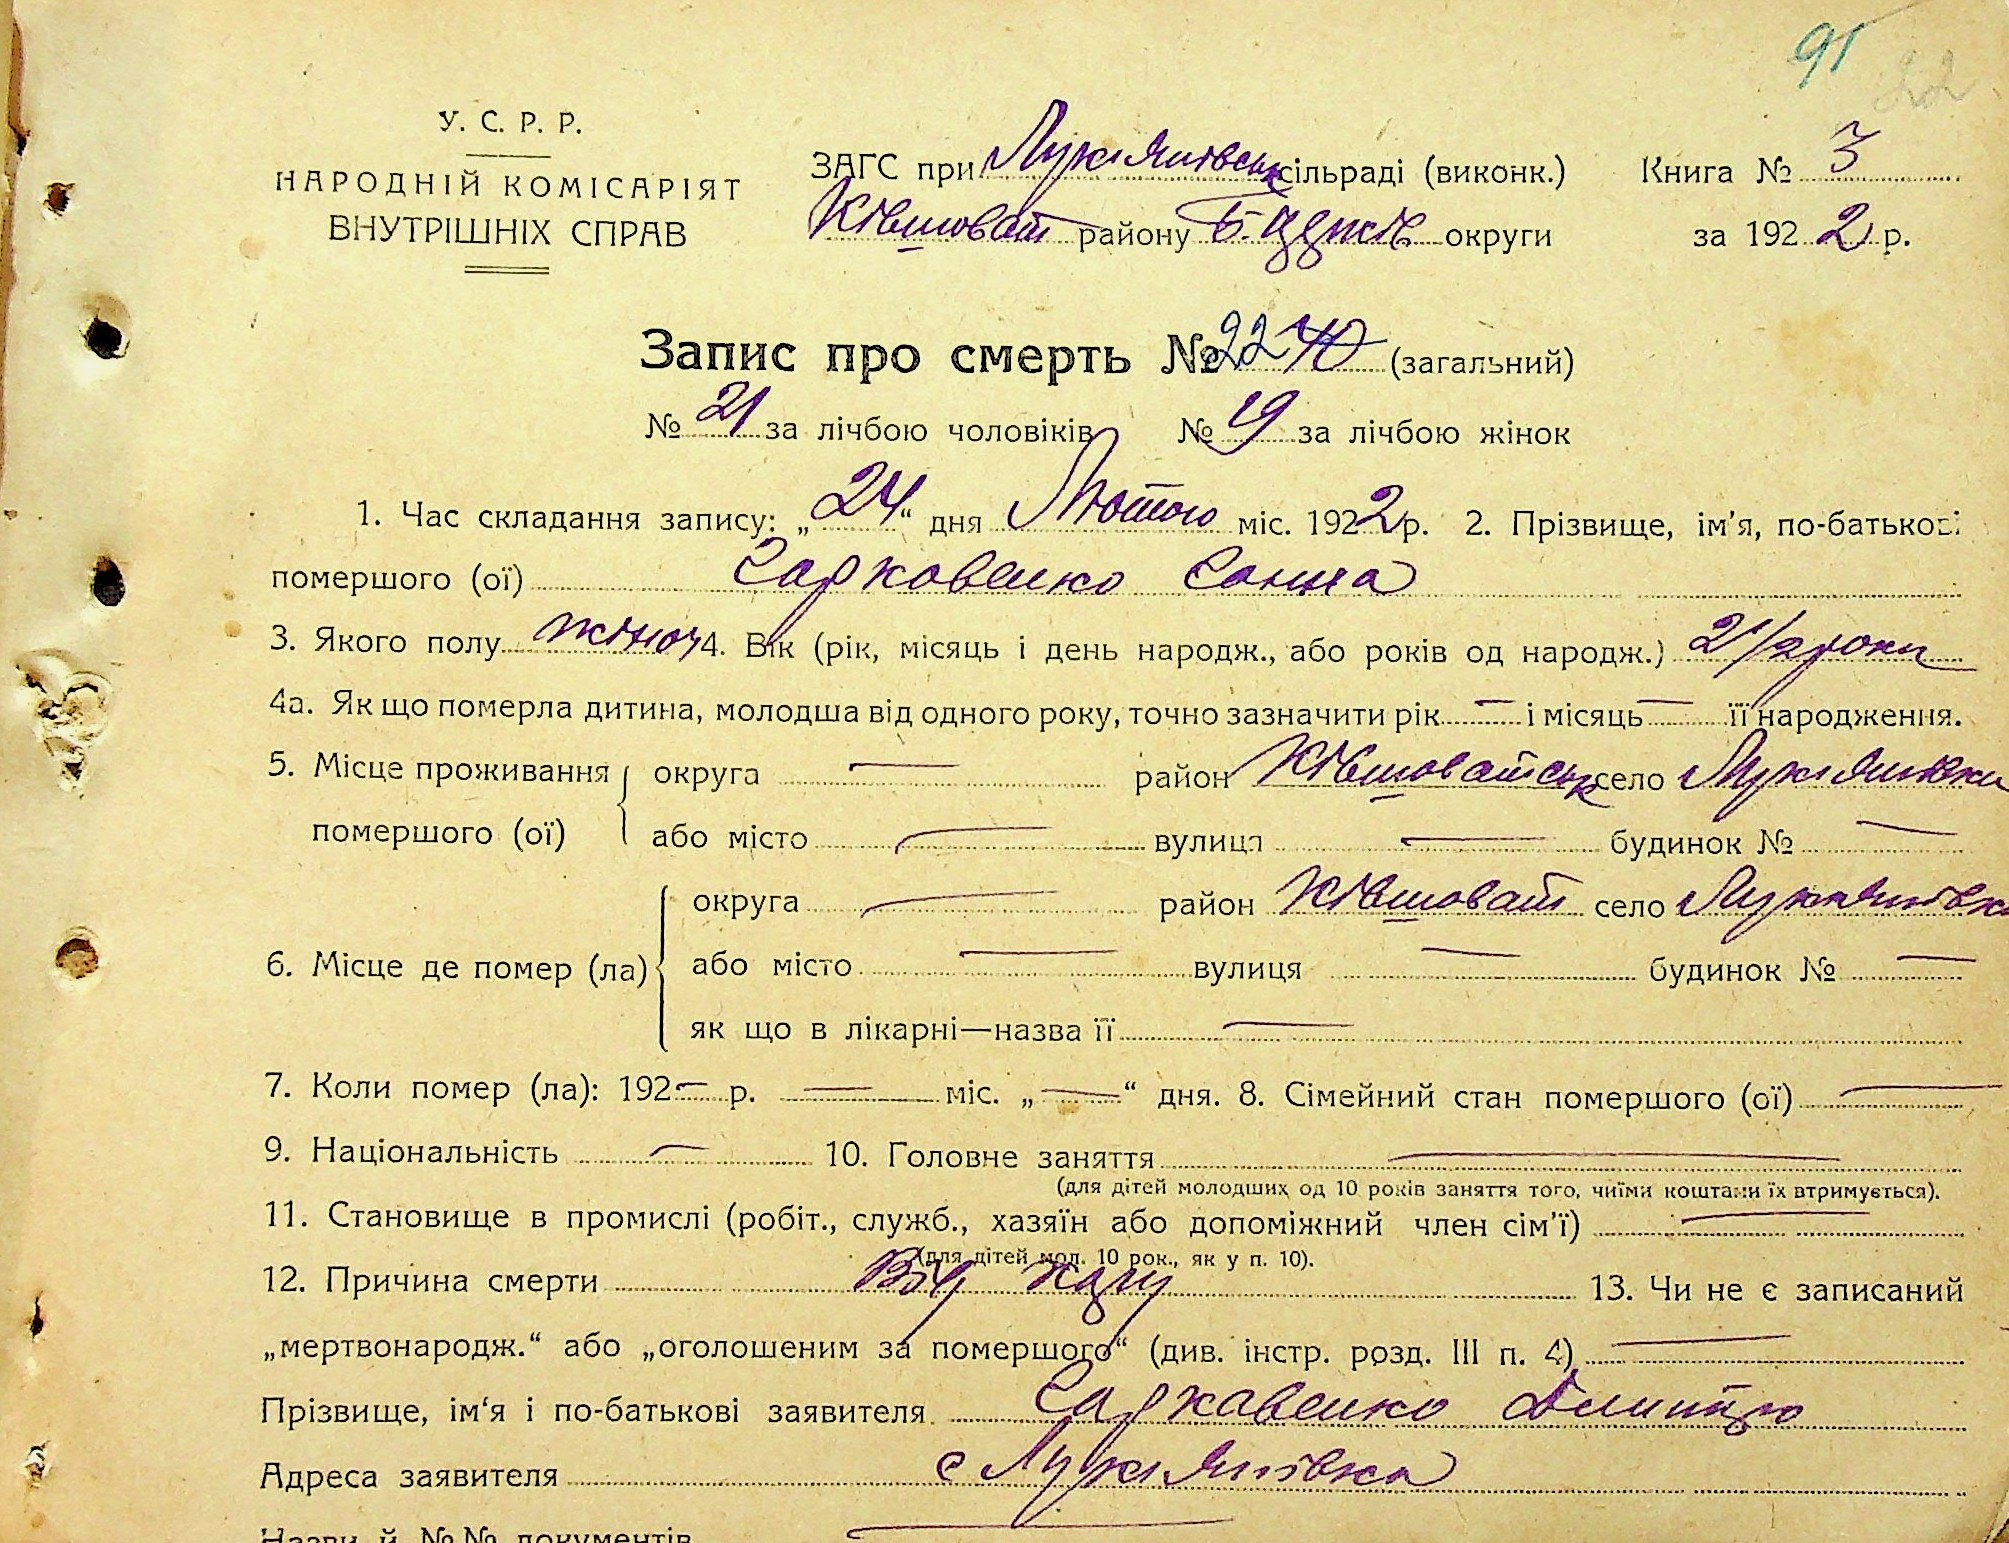 91
22
У. С. Р. Р.
НАРОДНІЙ КОМІСАРІЯТ
ВНУТРІШНІХ СПРАВ
ЗАГС при Лукянівськ сільраді (виконк.)
Ківшоват району Б. округи
Книга № 3
за 1922 р.
Запис про смерть № 22 40 (загальний)
№ 21 за лічбою чоловіків № 19 за лічбою жінок
1. Час складання запису: „24“ дня Лютого міс. 1922 р. 2. Прізвище, ім'я, по-батькові
помершого (ої) Сарковенко
3. Якого полу жіноч 4. Вік (рік, місяць і день народж., або років од народж.) 2 1/2 роки
4а. Як що померла дитина, молодша від одного року, точно зазначити рік — і місяць — її народження.
5. Місце проживання помершого (ої) округа — район Ківшоватськ село Лукянівка
або місто — вулиця — будинок № —
6. Місце де помер (ла) округа — район Ківшоват село Лукянівка
або місто — вулиця — будинок № —
як що в лікарні—назва її —
7. Коли помер (ла): 192— р. — міс. „—“ дня. 8. Сімейний стан помершого (ої) —
9. Національність — 10. Головне заняття —
(для дітей молодших од 10 років заняття того, чиїми коштами їх втримується).
11. Становище в промислі (робіт., служб., хазяїн або допоміжний член сім'ї) —
(для дітей мол. 10 рок., як у п. 10).
12. Причина смерти Від 13. Чи не є записаний
„мертвонародж.“ або „оголошеним за помершого“ (див. інстр. розд. III п. 4) —
Прізвище, ім'я і по-батькові заявителя Саркавенко Дмитро
Адреса заявителя с Лукянівка
Назви й №№ документів —